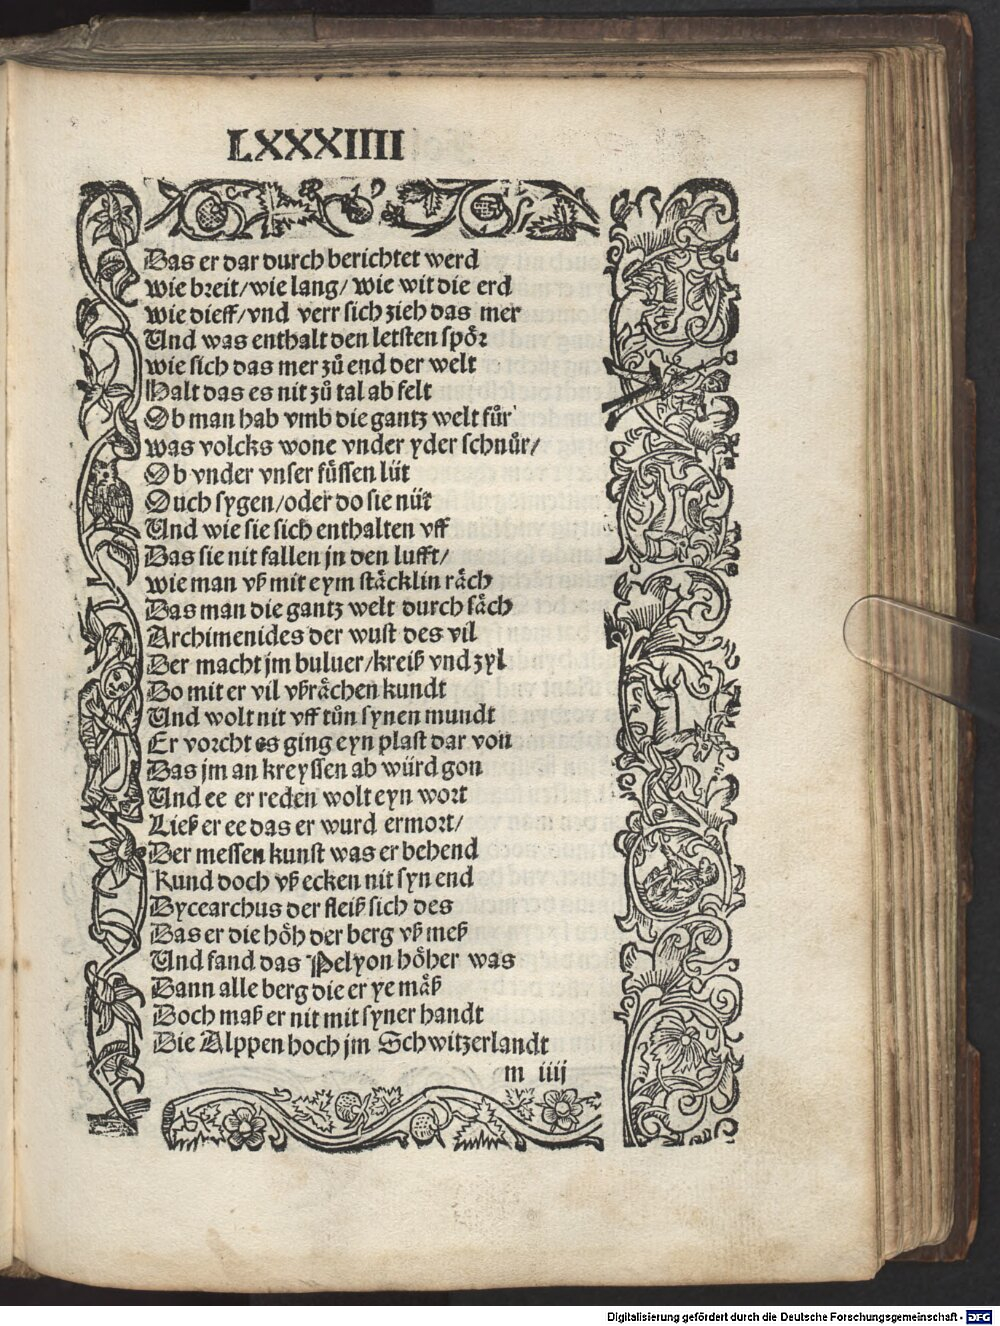 LXXXIIII
Das er dar durch berichtet werd
wie breit/wie lang/ wie wit die erd
wie dieff/vnd verr sich zieh das mer
Und was enthalt den letsten spör
wie sich das mer zů end der welt
Halt das es nit zů tal ab felt
Ob man hab vmb die gantz welt für
was volcks wone vnder yder schnůr/
Ob vnder vnser füssen lüt
Ouch sygen/oder do sie nüt
Und wie sie sich enthalten vff
Das sie nit fallen jn den lufft/
wie man vß mit eym stäcklin räch
Das man die gantz welt durch säch
Archimenides der wust des vil
Der macht jm buluer/kreiß vnd zyl
Do mit er vil vßrächen kundt
Und wolt nit vff tůn synen mundt
Er vorcht es ging eyn plast dar von
Das jm an kreyssen ab würd gon
Und ee er reden wolt eyn wort
Ließ er ee das er wurd ermort/
Der messen kunst was er behend
Kund doch vß ecken nit syn end
Dycearchus der fleiß sich des
Das er die höh der berg vß meß
Und fand das Pelyon höher was
Dann alle berg die er ye mäß
Doch maß er nit mit syner handt
Die Alppen hoch jm Schwitzerlandt
m iiij
Digitalisierung gefördert durch die Deutsche Forschungsgemeinschaft - DFG